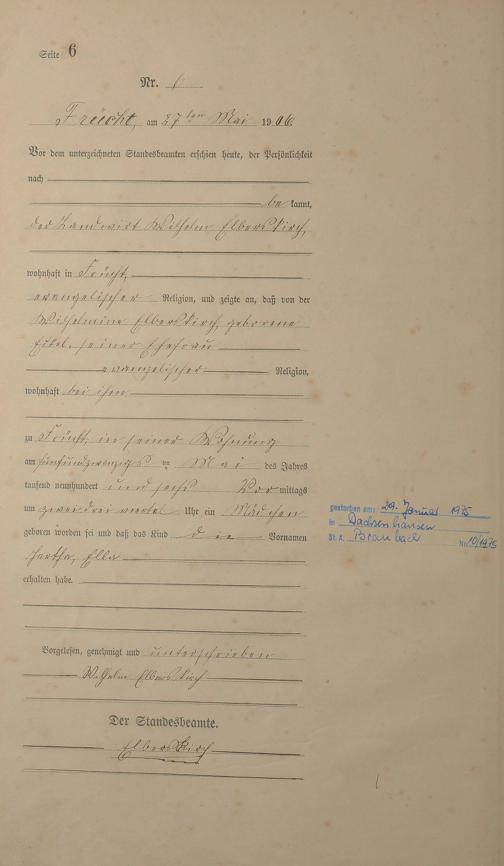 Seite 6
Nr. 6
Früecht, am 27ten Mai 1906.
Vor dem unterzeichneten Standesbeamten erschien heute, der Persönlichkeit
nach
be kannt,
der Landwirt Wilhelm Elberskirch,
wohnhaft in Früeht,
evangelischer Religion, und zeigte an, daß von der
Wilhelmine Elberskirch, geborene
Eikel, seiner Ehefrau
evangelischer Religion,
wohnhaft bei ihm
zu Früeht, in seiner Wohnung
am fünfundzwanzigsten Mai des Jahres
tausend neunhundert und sechs Vor mittags
um zwei drei viertel Uhr ein Mädchen
geboren worden sei und daß das Kind die Vornamen
Hertha, Ella
erhalten habe.
Vorgelesen, genehmigt und unterschrieben
Wilhelm Elberskirch
Der Standesbeamte.
Elberskirch
gestorben am: 29. Januar 1975
in Dachsenhausen
St. A. Braubach Nr. 10/1975